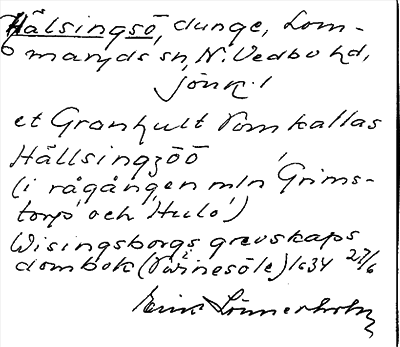 Hälsingsö, dunge, Lom-
maryds sn, N. Vedbo hd,
Jönk. l
et Granhult som kallas
Hällsingzöö
(i rågången mln Grims-
torp och Hulo)
Wisingsborgs grevskaps
dombok (Twinesöle) 1634 27/6
Erik Lönnerholm